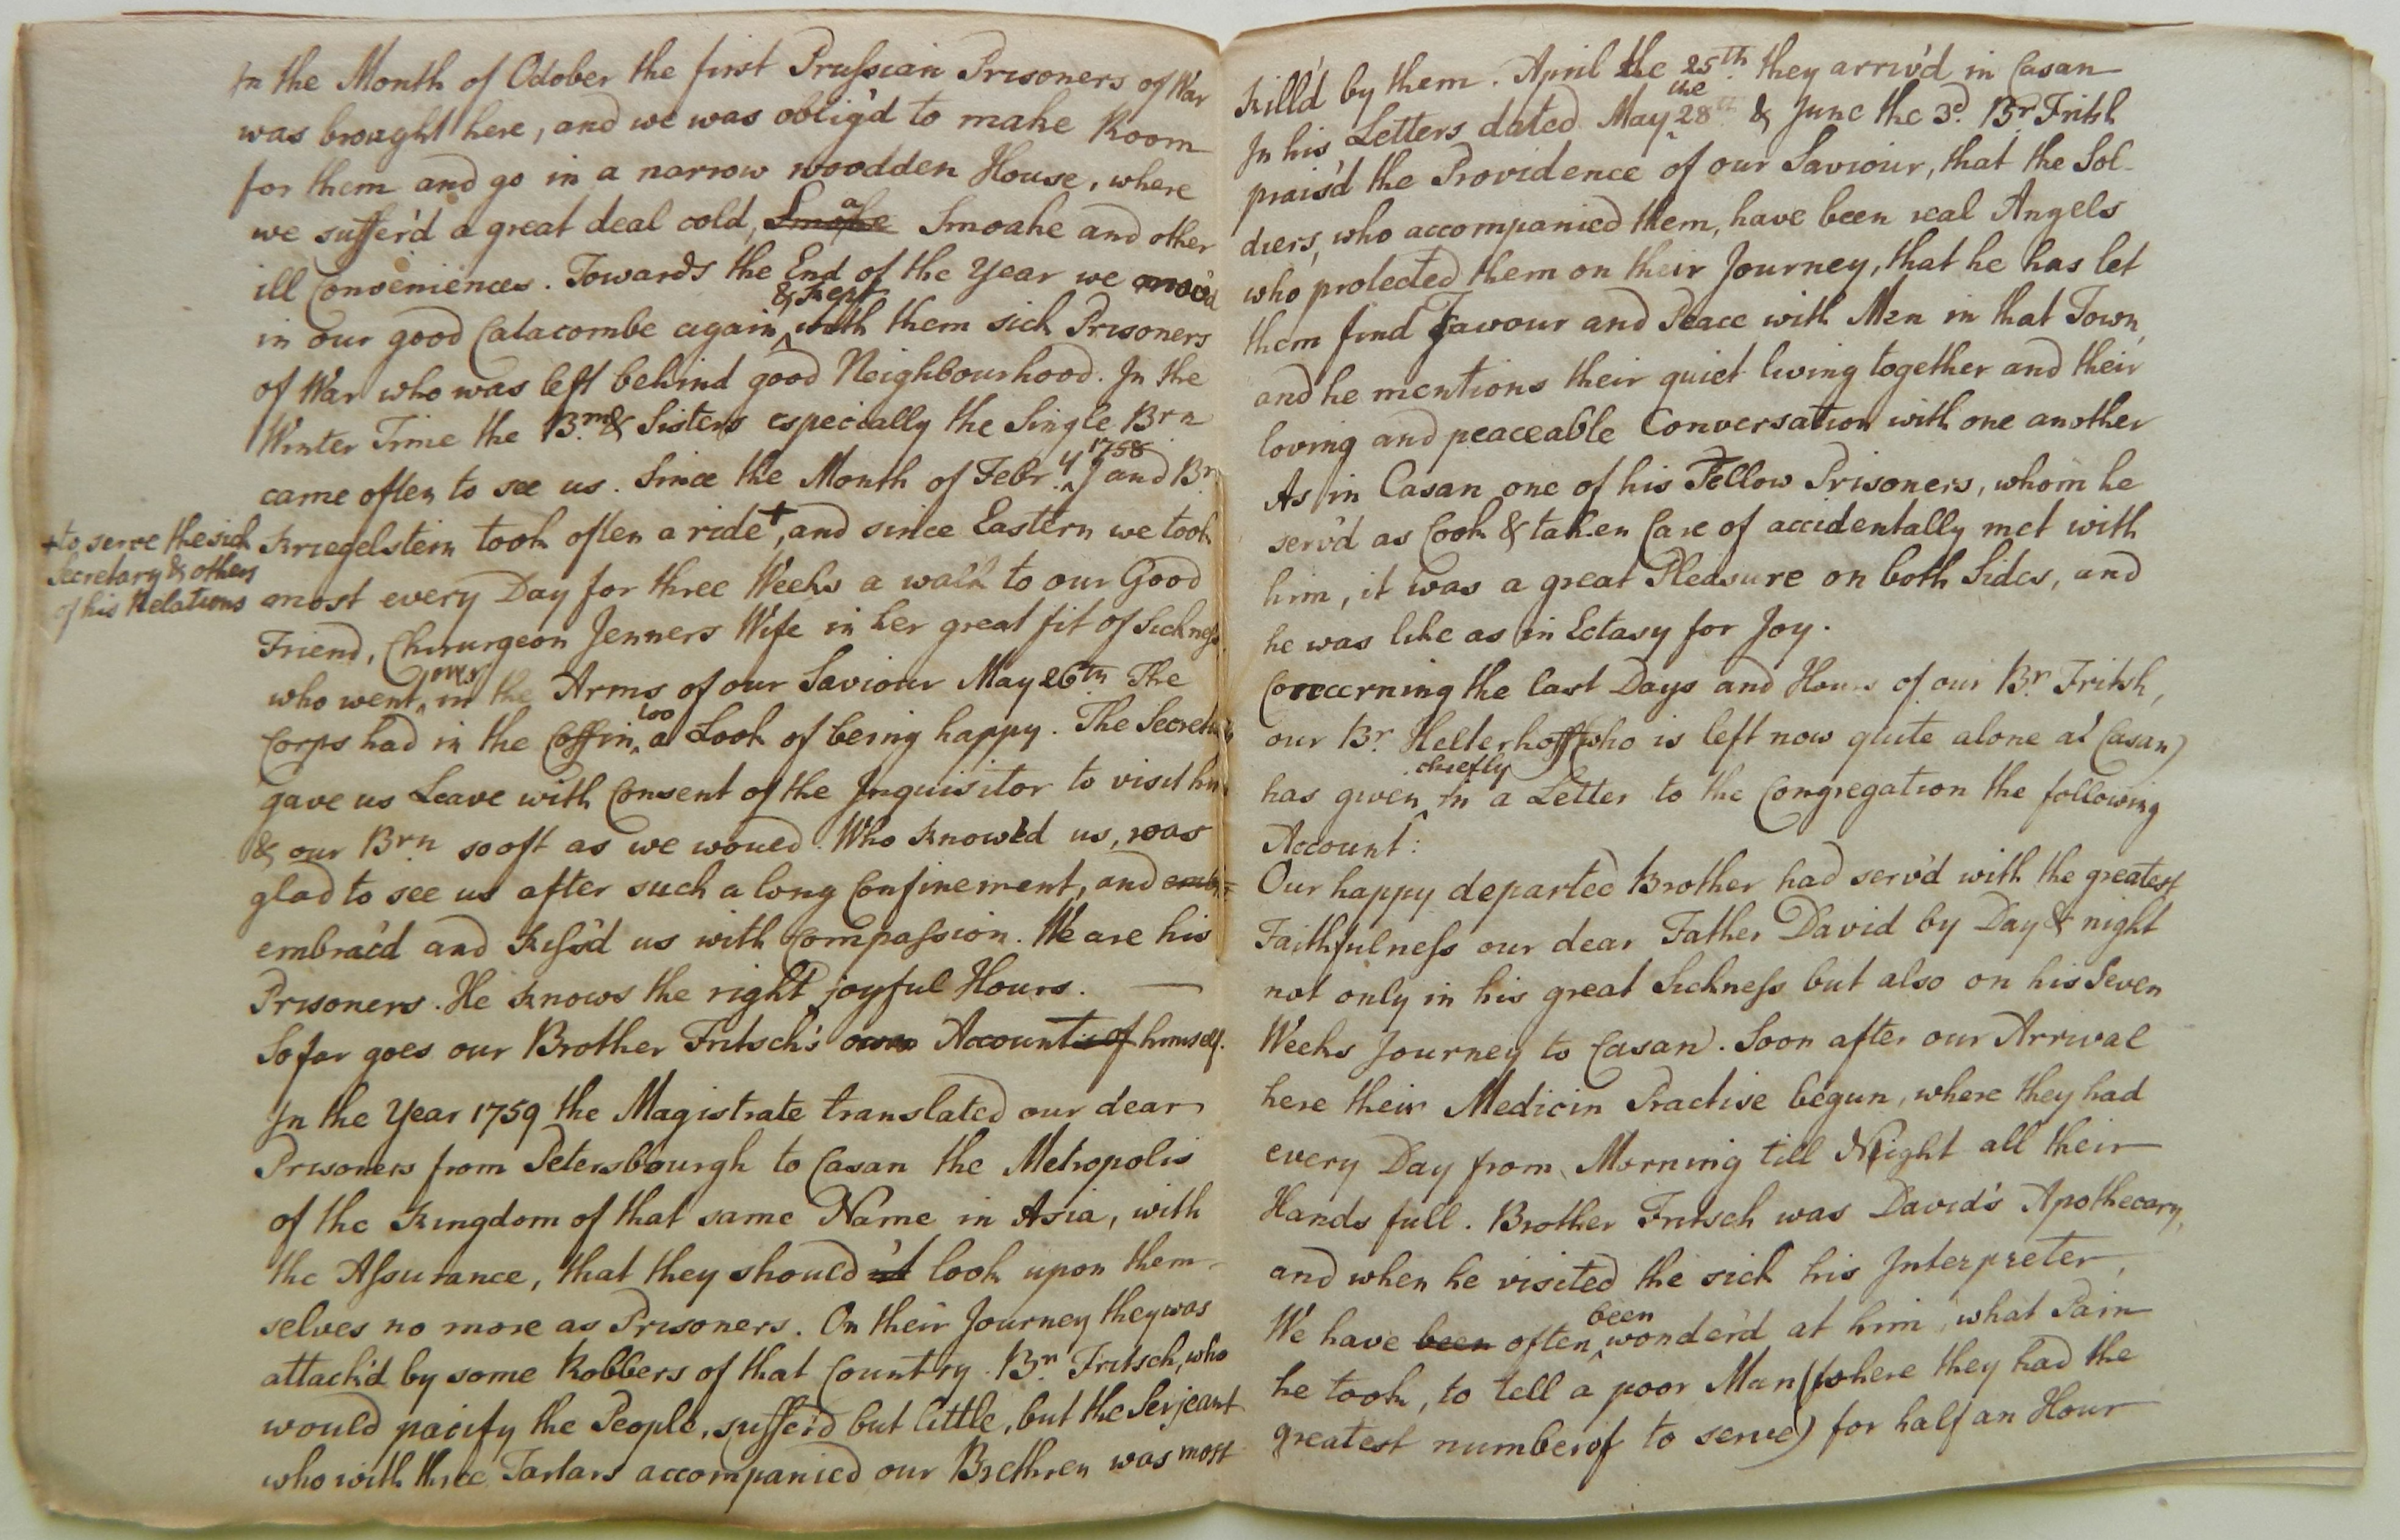 In the Month of October the first Prussian Prisoners of War
was brought here, and we was oblig'd to make Room
for them and go in a narrow woodden House, where
we suffer'd a great deal cold, Smoake Smoake and other
ill Conveniences. Towards the End of the Year we mov'd
& kept
in our good Catacombe again, with them sick Prisoners
of War who was left behind good Neighbourhood. In the
Winter Time the Brn & Sisters especially the Single Brn
1758
came often to see us. Since the Month of Febr.y I and Br
Kriegelstein took often a ride +, and since Eastern we took
+ to serve the sick
Secretary & others
of his Relations
most every Day for three Weeks a walk to our Good
Friend, Chirurgeon Jenners Wife in her great fit of Sickness
over
who went in the Arms of our Saviour May 26th The
too
Corps had in the Coffin, a Look of being happy. The Secret
gave us Leave with Consent of the Inquisitor to visit him
& our Brn so oft as we would. Who know'd us, was
glad to see us after such a long Confinement, and emb=
embrac'd and kiss'd us with Compassion. We are his
Prisoners. He knows the right joyful Hours. —
So far goes our Brother Fritsch's own Account of himself.
In the Year 1759 the Magistrate translated our dear
Prisoners from Petersbourgh to Casan the Metropolis
of the Kingdom of that same Name in Asia, with
the Assurance, that they should look upon them-
selves no more as Prisoners. On their Journey they was
attack'd by some Robbers of that Country. Br. Fritsch, who
would pacify the People, suffer'd but little, but the Serjeant
who with three Tartars accompanied our Brethren was most
kill'd by them. April the 25th they arriv'd in Casan
the
In his Letters dated May 28th & June the 3d. Br. Fritsh
prais'd the Providence of our Saviour, that the Sol-
diers, who accompanied them, have been real Angels
who protected them on their Journey, that he has let
them find Favour and Peace with Men in that Town,
and he mentions their quiet living together and their
loving and peaceable Conversation with one another
As in Casan one of his Fellow Prisoners, whom he
serv'd as Cook & taken Care of accidentally met with
him, it was a great Pleasure on both Sides, and
he was like as in Ectasy for Joy.
Concerning the last Days and Hours of our Br. Fritsh,
our Br. Helterhoff (who is left now quite alone at Casan)
chiefly
has given in a Letter to the Congregation the following
Account:
Our happy departed Brother had serv'd with the greatest
Faithfulness our dear Father David by Day & night
not only in his great Sickness but also on his Seven
Weeks Journey to Casan. Soon after our Arrival
here their Medicin Practise begun, where they had
every Day from Morning till Night all their
Hands full. Brother Fritsch was David's Apothecary,
and when he visited the sick his Interpreter,
been
We have been often wonder'd at him, what Pain
he took, to tell a poor Man (where they had the
greatest number of to serve) for half an Hour